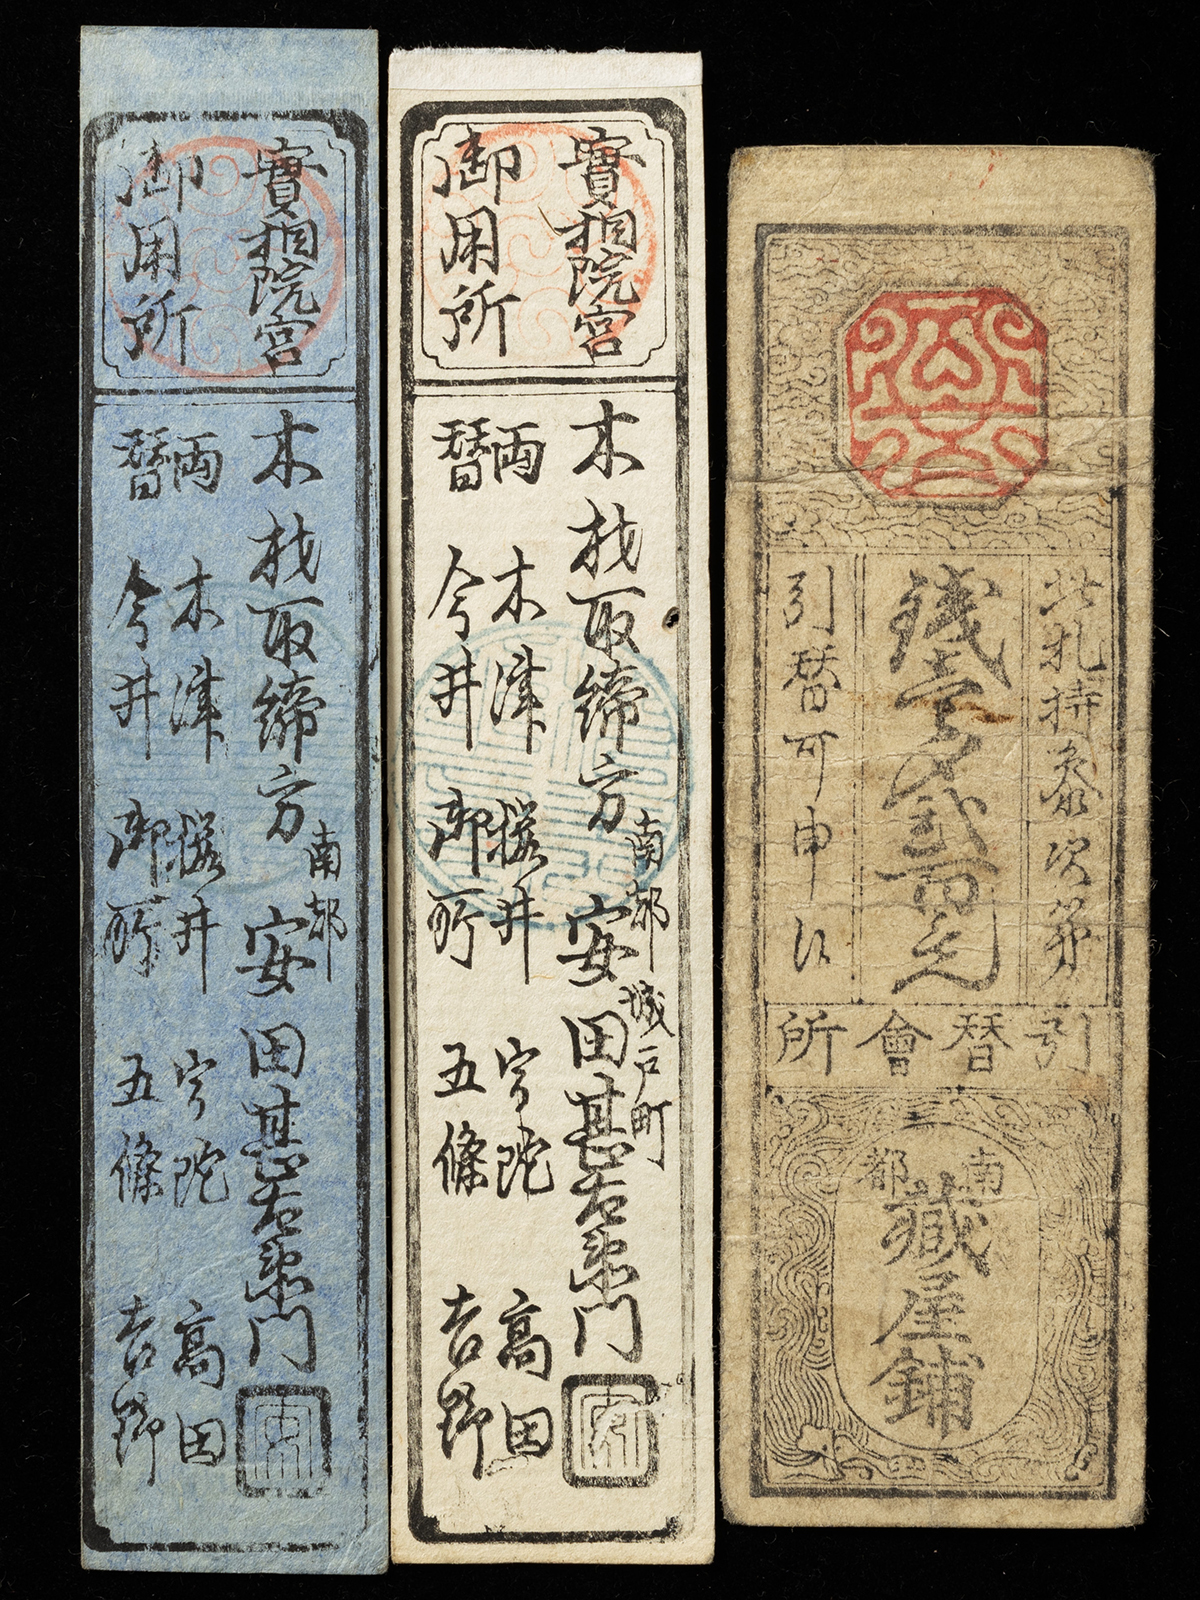 實相院宮
御用所
木材取締方
南都
安田甚右衛門
両替
木津
桜井
宇陀
高田
今井
御所
五條
吉野
實相院宮
御用所
木材取締方
南都城戸町
安田甚右衛門
両替
木津
桜井
宇陀
高田
今井
御所
五條
吉野
此札持参次第
銭壹〆貳百文
引替可申候
引替會所
南都
蔵屋鋪